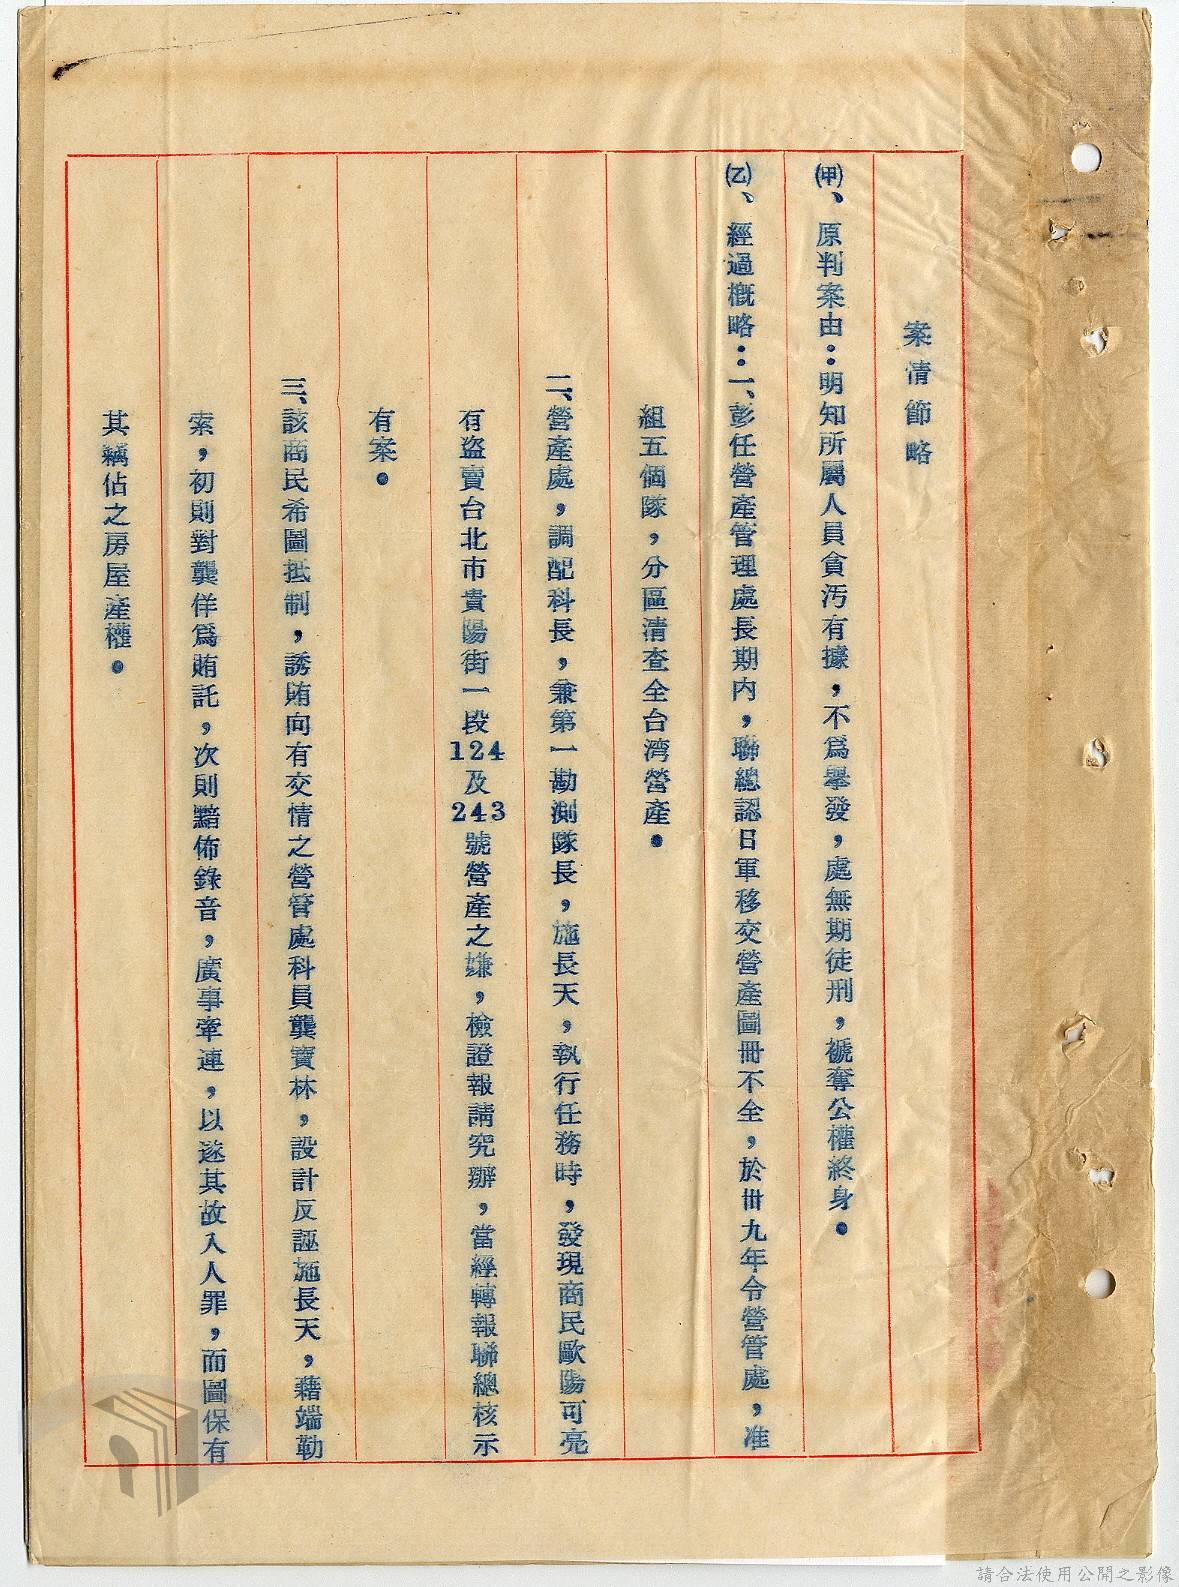 案情節略
㈙、原判案由：明知所屬人員貪污有據，不爲舉發，處無期徒刑，褫奪公權終身。
㈚、經過概略：一、彭任營產管理處長期內，聯總認日軍移交營產圖冊不全，於卅九年令營管處，准
組五個隊，分區清查全台湾營產。
二、營產處，調配科長，兼第一勘測隊長，施長天，執行任務時，發現商民歐陽可亮
有盜賣台北市貴陽街一段124及243號營產之嫌，檢證報請究辦，當經轉報聯總核示
有案。
三、該商民希圖抵制，誘賄向有交情之營管處科員龔寶林，設計反誣施長天，藉端勒
索，初則對龔佯爲賄託，次則黯佈錄音，廣事牽連，以遂其故入人罪，而圖保有
其竊佔之房屋產權。
請合法使用公開之影像